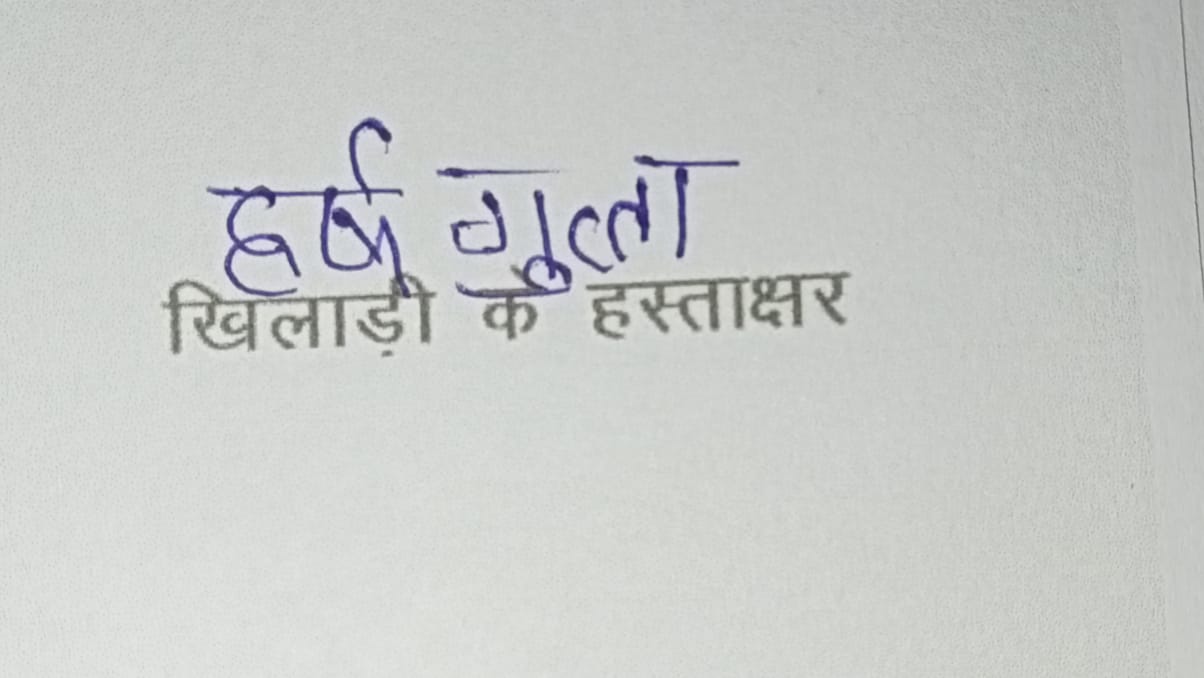 हर्ष गुप्ता
खिलाड़ी के हस्ताक्षर